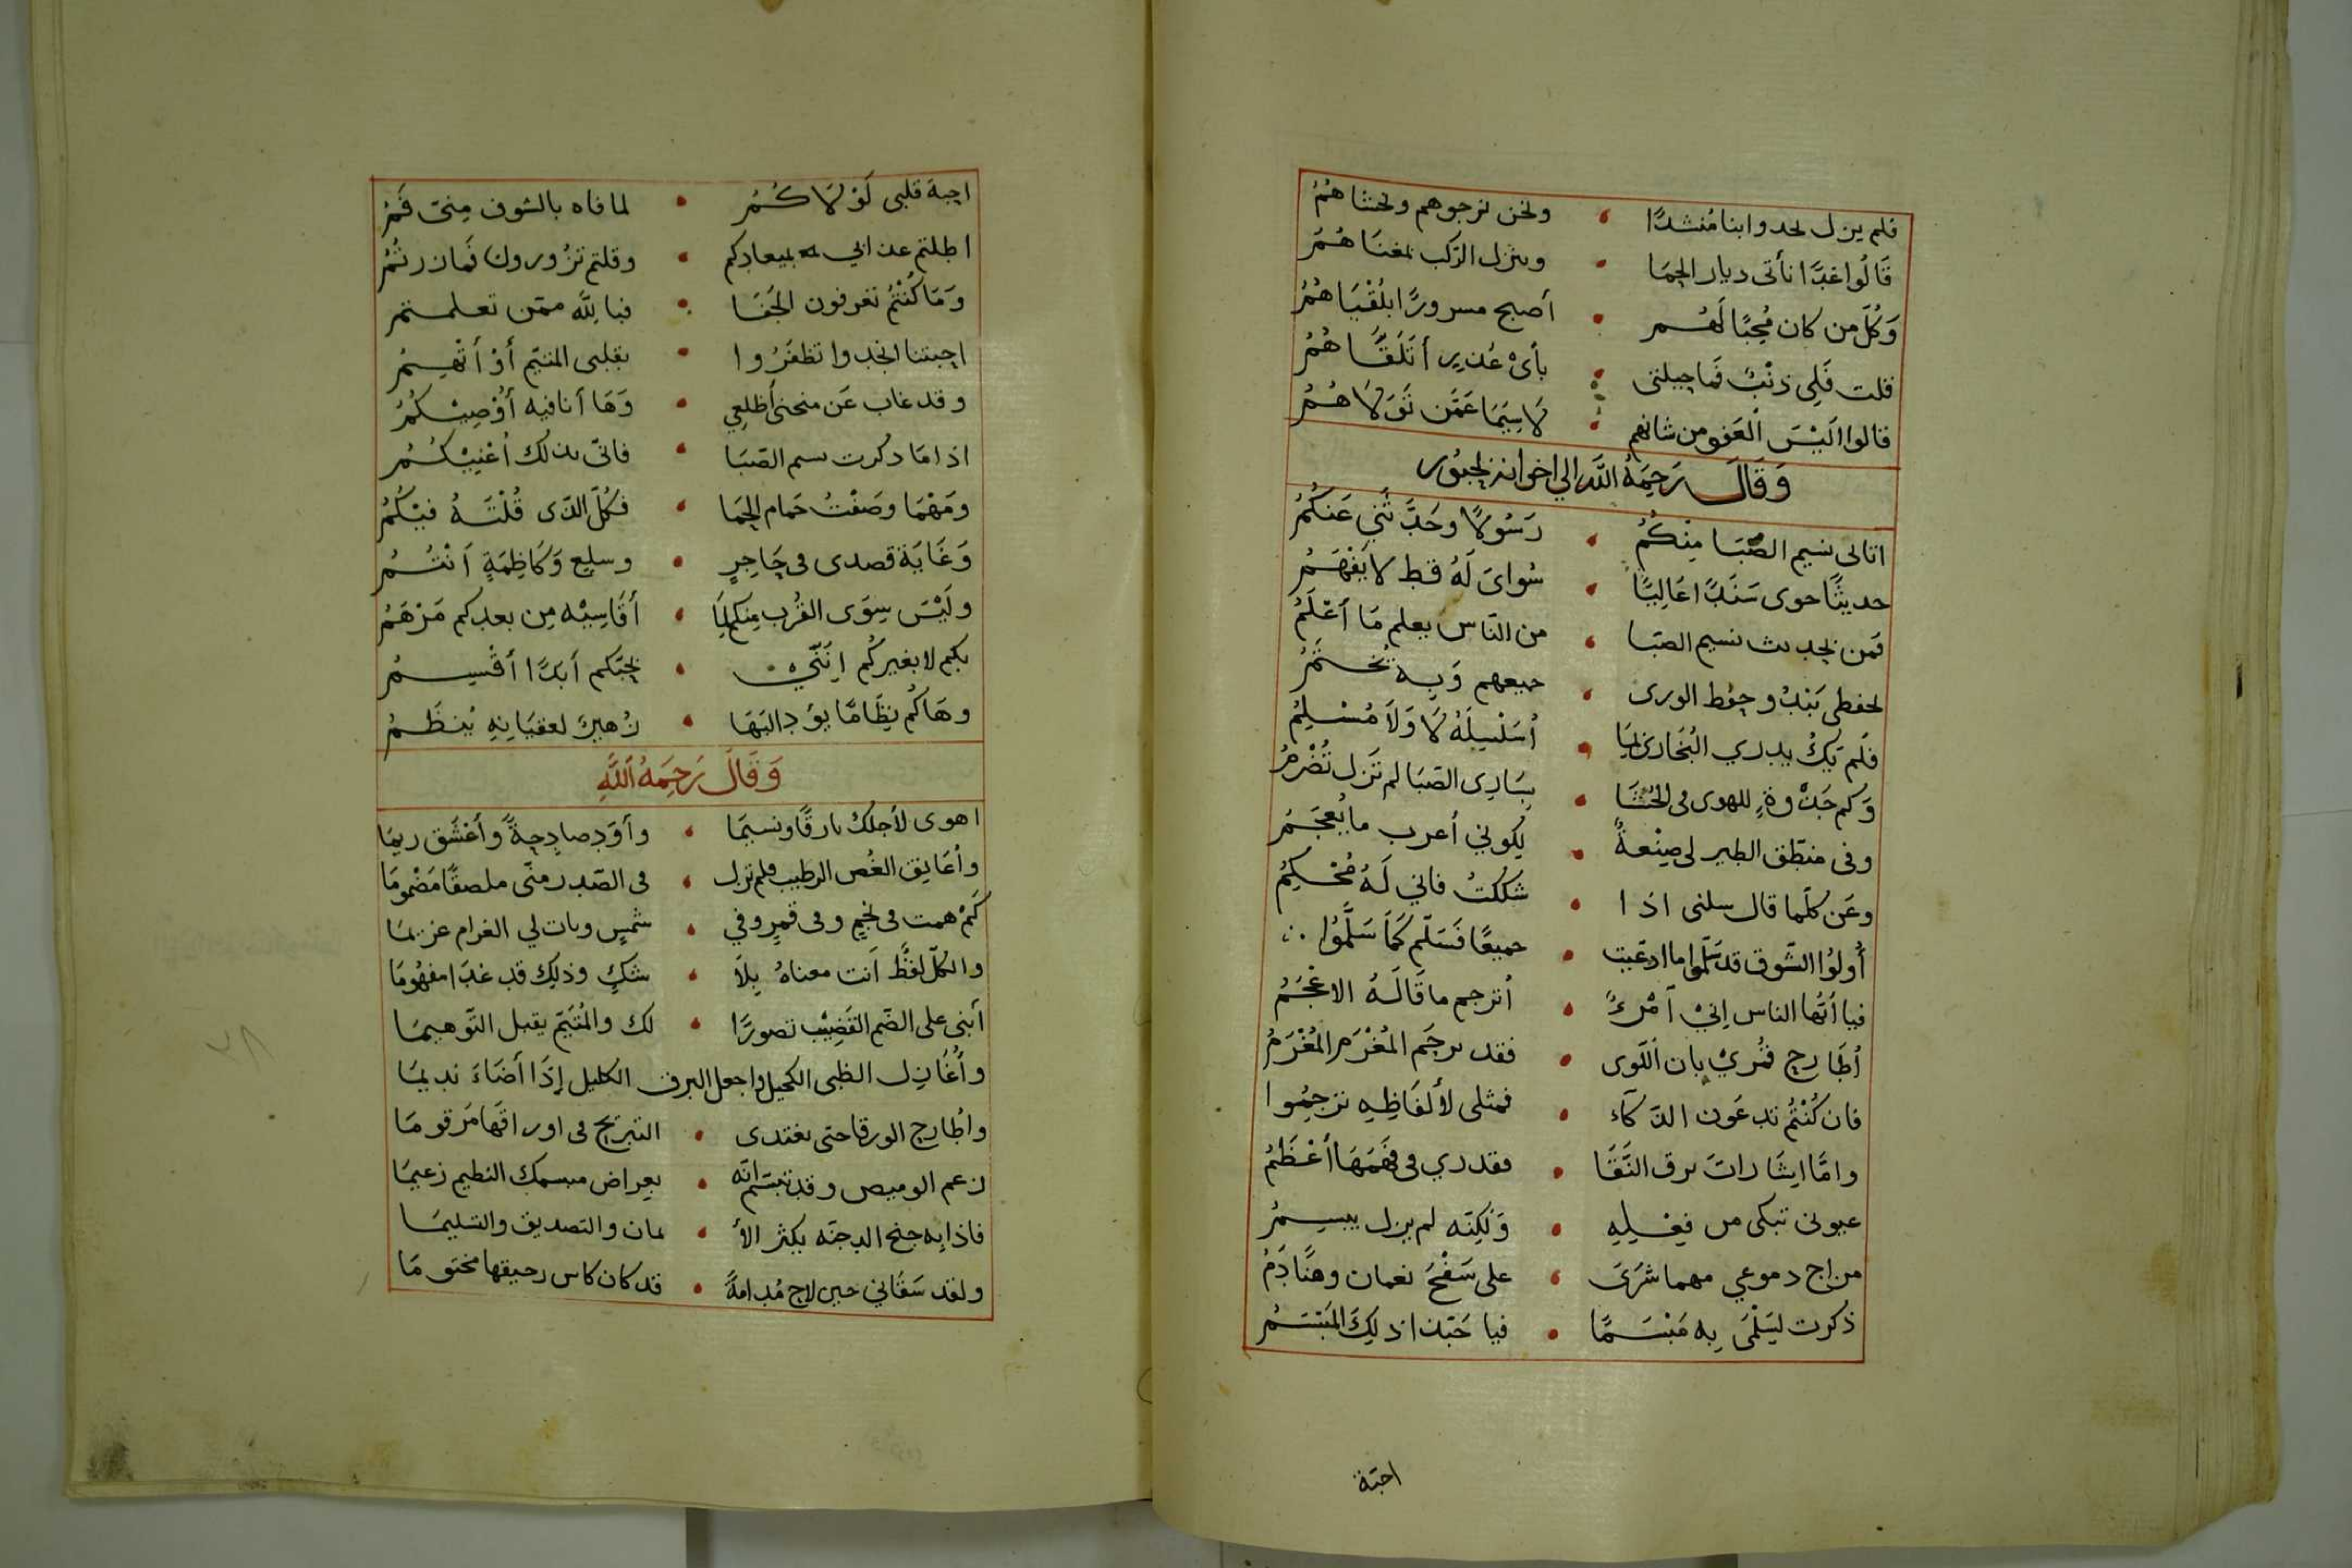 فلم يزل يحدوا بنا مُنشدًا • ونحن نرجوهم ونخشاهُمُ
قَالُوا غدًا نأتى ديار الحِمَا • وينزل الرّكب بمغنَاهُمُ
وَكُلّ من كان مُحِبًا لَهُم • أصبح مسرورًا بلُقْيَاهُمُ
قلت فَلِى ذنْبٌ فَما حِيلتى • بأىْ عُذرٍ أتَلَقَّاهُمُ
قالوا الَيْسَ العَفو من شانهم • لَا سِيَمَا عَمَّن تَوَلَاهُمُ
وَقَالَ رَحِمَهُ اللَّه الي اخوانه بجبور
اتانى نسيم الصّبَا مِنْكُمُ • رَسُولًا وحَدَّثَنِي عَنكُمُ
حديثًا حوى سَنَدًا عَالِيًا • سُواىَ لَهُ قط لا يَفْهَمُ
فَمن بحديث نسيم الصّبا • من النّاس يعلم مَا أعْلَمُ
لحفظى تَبْدُو حِفْظ الورى • جميعهم وَبِه تُخْتَمُ
فَلم يَكُ يدري البُخَارىّ لِمَا • أُسَلْسِلَهُ لَا وَلَا مُسْلِمُ
وَكم جَذْوةٍ للهوى فى الحَشَا • بِسَارِى الصّبَا لم تَزل تُضْرَمُ
وفى منطّق الطير لى صِنْعةُ • لِكوني أعرب ما يُعجَمُ
وعَن كلّما قال سلنى اذا • شككتُ فاني لَهُ مُحْكِمُ
أُولُوا الشّوق قد سَلّموا ما ادّعيت • جميعًا فَسَلّم كَمَا سَلَّمُوا
فيا أيّها الناس اِنيْ اَمْرءُ • أترجم ما قَالَهُ الاعْجَمُ
أطَارح قُمْريْ بان اَللّوى • فقد ترجَم المُغْرَم المُغْرَمُ
فان كُنْتُم تدعَون الذّكآء • فمثلى لأَلفَاظِهِ ترجِمُوا
وامّا اِشَارات برق النّقَا • فقدري فى فَهْمَهَا أعْظَمُ
عيونى تبكى من فِعْلِهِ • وَلَكِنّه لم يزل يبسِمُ
مزاج دموعي مهما سَرَى • على سَفْحَ نعمان وهنًا دَمُ
ذكرت لِسَلْمَى بِه مَبْسَمًا • فيا حَبّذا ذلِكَ المَبْسَمُ
احبّة
احِبة قلبى لَوْلَاكُمُ • لما فاه بالشوق مِنىّ فَمُ
اطلتم عذابي بميعادِكم • وقلتم تزُورون فَما زرتُمُ
وَمَا كُنْتُمُ تعرفون الجَفَا • فباللَّه ممّن تعلمتم
احبتنا انجدوا تظفَرُوا • بقلبى المتيّم أوْ أتْهِمُ
وقد غاب عَن منحنى أضلعِي • وَهَا أنا فيه أُوْصِيْكُمُ
اذا مَا ذكرت نسيم الصّبَا • فانّى بذلك أعْنِيْكُمُ
ومَهْمَا وصَفْتُ حَمام الحِمَا • فكُلّ الذّى قُلْتَهُ فيْكُمُ
وَغَايَة قصدى فى حَاجِرٍ • وسلعٍ وَكَاظِمَةٍ اَنْتُمُ
ولَيْسَ سِوَى القُرب مِنكم لِمَا • أقَاسِيْه مِن بعدكم مَرْهَمُ
بكم لا بغيركُم اِنَنّيْ • بحبّكم أبَدًا أقْسِمُ
وهَاكُم نِظَامًا يوَد البَهَا • زُهيرٌ لعقيَانِهِ يُنظَمُ
وَقَالَ رَحِمَهُ اَللَّهِ
اهوى لأجلك بارقًا ونسيمَا • وأوَد صادِحةً وأعْشَق ريمَا
وأعَانِق الغُصن الرطيب فلم تزل • فى الصّدر منّى ملصقًا مَضْمومَا
كَمْ همت فى نجمٍ وفى قمرٍ وفي • شمسٍ وبات لي الغرام غريمَا
والكلّ لفظٌ اَنت معناهُ بِلَا • شكٍ وذلك قد غدَا مفهُومَا
أبنى على الضّم القَضِيْب تصورًا • لك والمُتَيّمِ يقبل التّوهيمَا
وأُغَازِل الظبى الكحيل واجعل البرق الكليل إِذَا أضَاءَ نديمَا
وأطَارح الورقا حتى تغتدى • التبريح فى اوراقهَا مَرقومَا
زعم الوميض وقد تبسّم انّه • بعِراض مبسمك النظيم زعيمَا
فاذا به جنح الدجنّه يكثر الأ • يمان والتصديق والتسليمَا
ولقد سَقَاني حين لاح مُدامةً • قد كان كاس رحيقها مختومَا